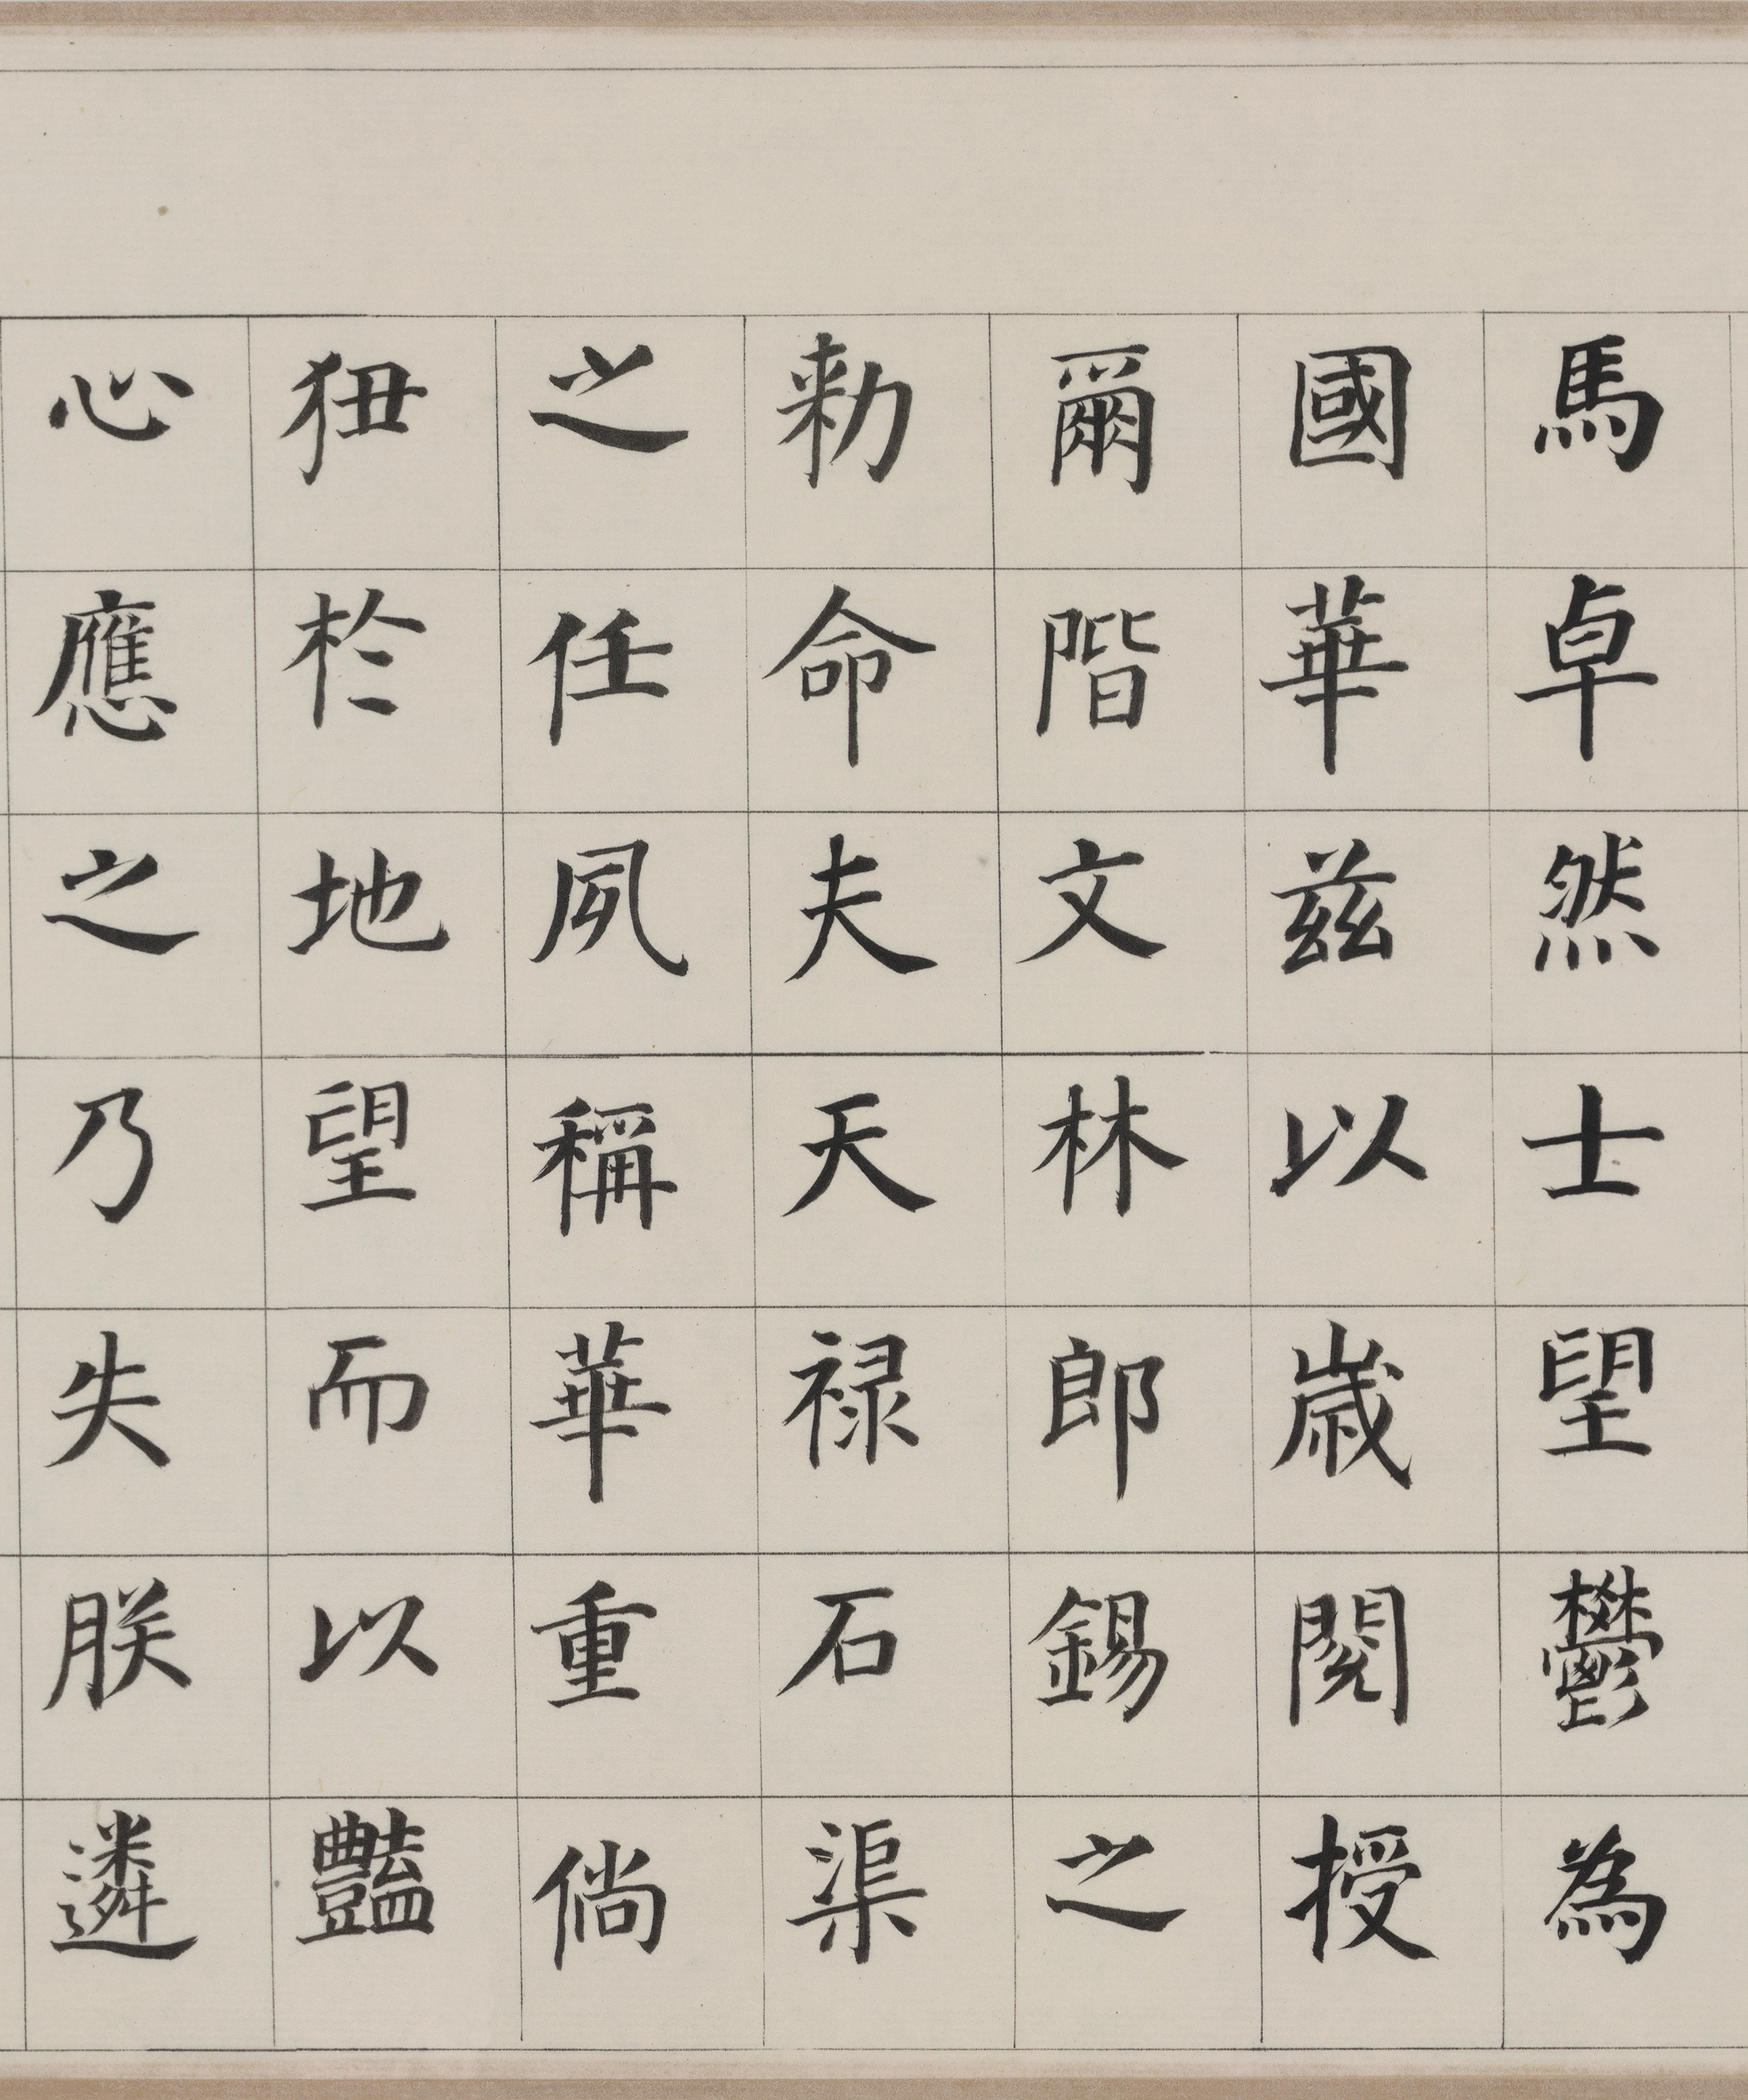 馬卓然士望鬱為
國華兹以歲閱授
爾階文林郎錫之
勑命夫天禄石渠
之任夙稱華重倘
狃於地望而以豔
心應之乃失朕遴